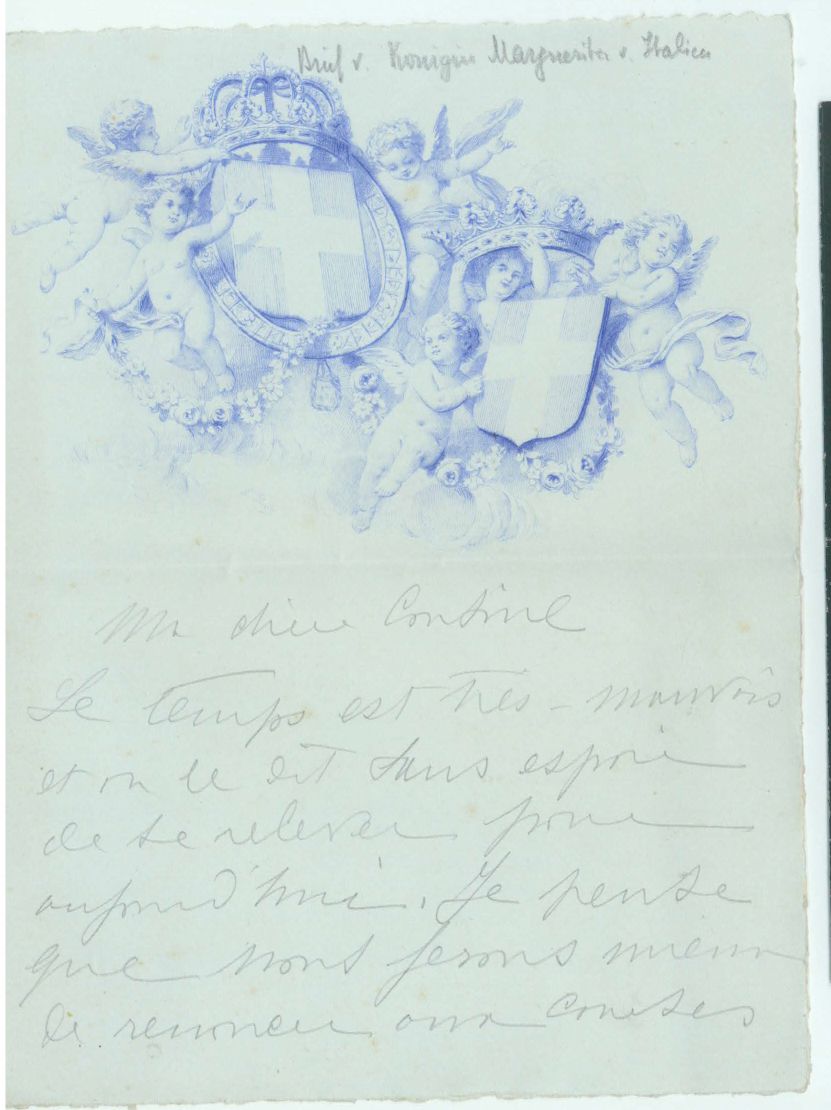 Brief v. Königin Margherita v. Italien
Ma chère Contine
Le temps est très-mauvais
et on le dit sans espoir
de se relever pour
aujourd'hui. Je pense
que nous ferons mieux
de renoncer aux courses